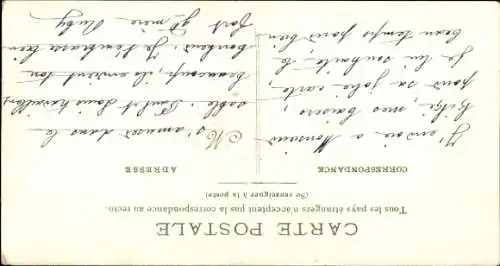 CARTE POSTALE
Tous les pays étrangers n'acceptent pas la correspondance au recto.
(Se renseigner à la poste)
CORRESPONDANCE
ADRESSE
J'envoie a Monsieur
mes baisers,
pour sa jolie carte,
Je lui souhaite le
beau temps pour bien
s'amuser dans le
sable. Paul et Louis
beaucoup, ils envient ton
bonheur. Je t'embrasse bien
fort Gd mère Ruby